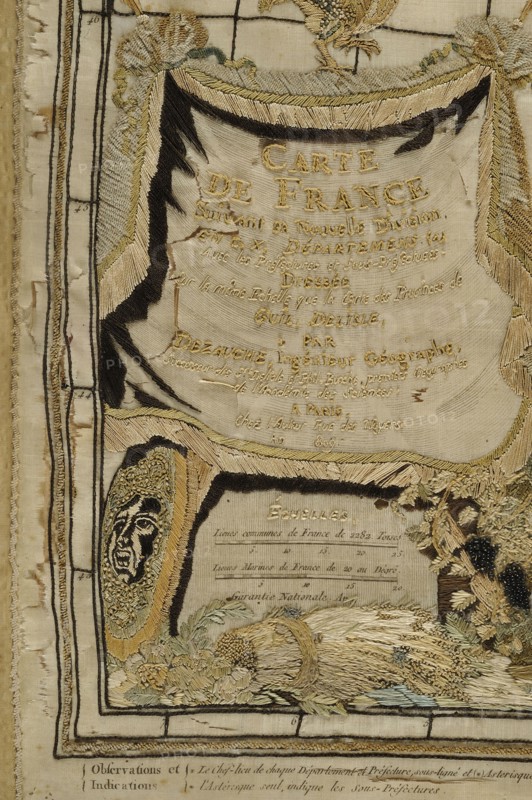 CARTE
DE FRANCE
Suivant sa Nouvelle Division,
EN DÉPARTEMENS
Avec les Préfectures et Sous-Préfectures;
Dressée
Sur la même Echelle que la Carte des Provinces de
GUIL. DELISLE,
PAR
DEZAUCHE Ingénieur Géographe,
de l'Académie des Sciences
A PARIS,
Chez l'Auteur Rue des Noyers
ÉCHELLES.
Lieues communes de France de 2282 Toises
5 10 15 20 25
Lieues Marines de France de 20 au Dégré
5 10 15 20
Garantie Nationale
Observations et Indications
* Le Chef-lieu de chaque Département et Préfecture, sous-ligné et (*) Astérisque
* l'Astérisque seul, indique les Sous-Préfectures.